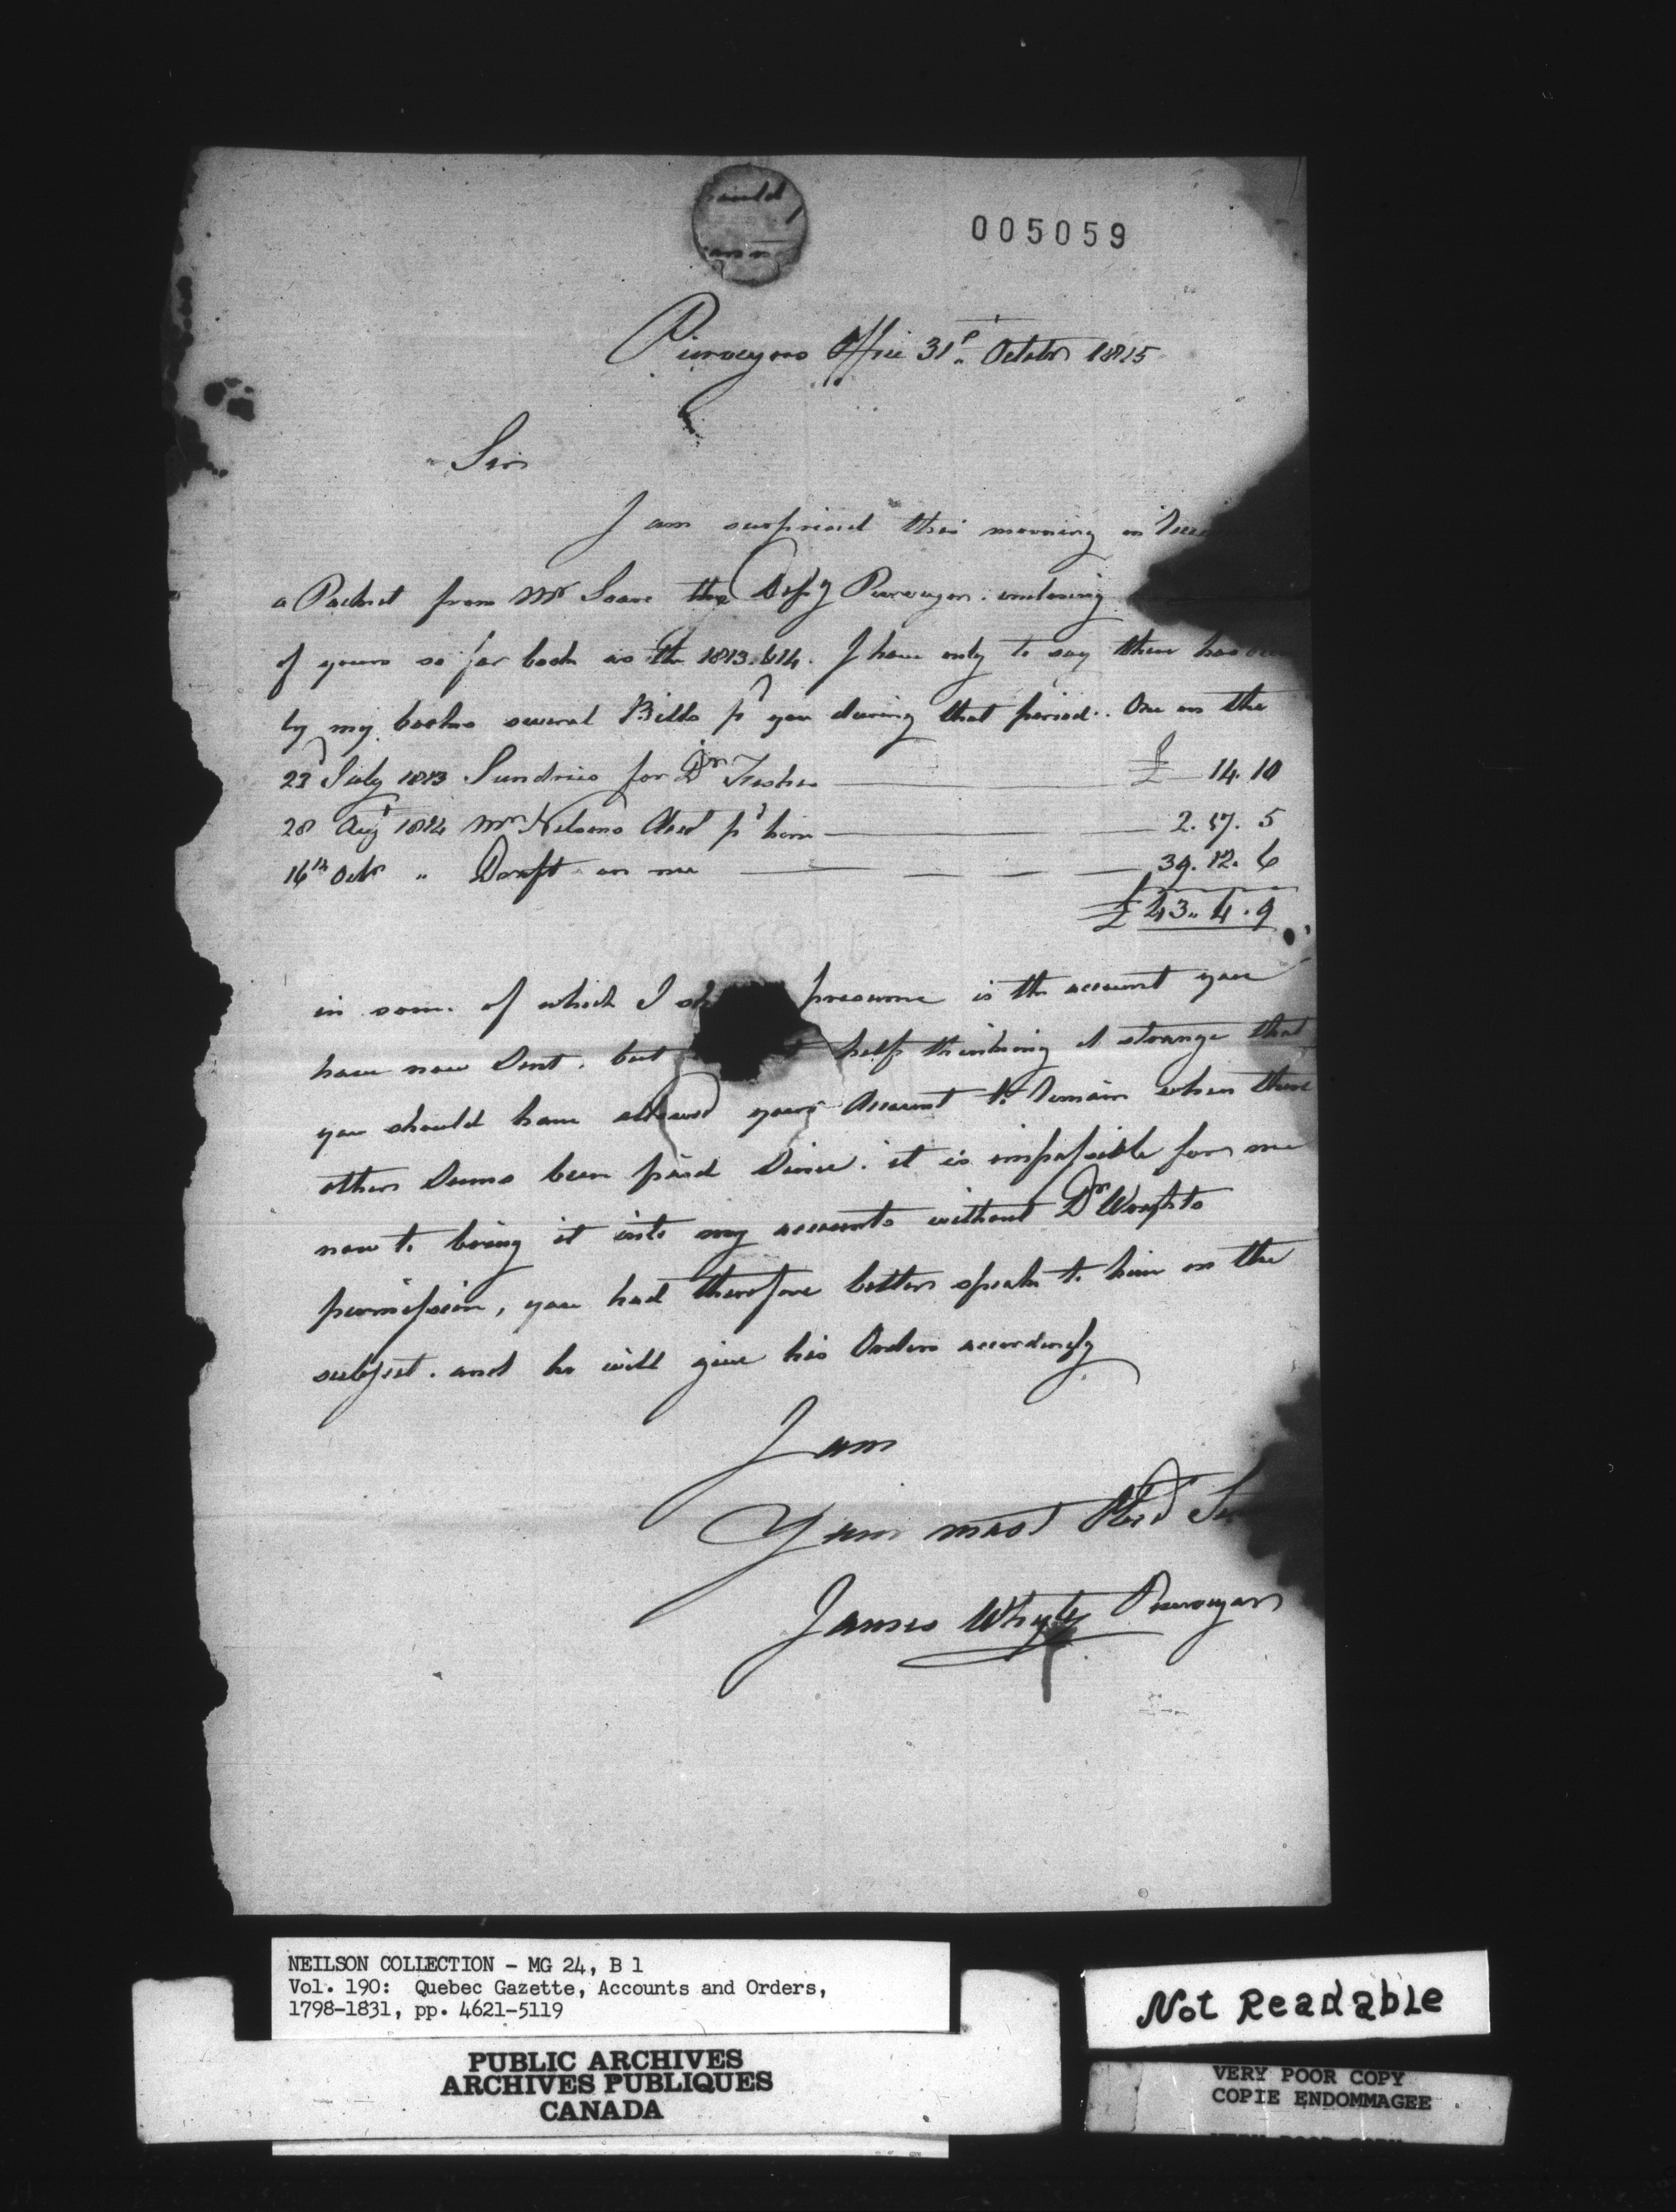 005059
Purveyors Office 31st October 1815
Sir
I am surprised this morning in
a Packet from Mr the Depy Purveyor enclosing
of yours so far back as the 1813 & 14. I have only to say there has been
by my books several Bills pd you during that period. One on the
23d July 1813 Sundries for Dr £ 14. 10
28 Augt 1814 Mr Nelsons Acct pd him 2. 17. 5
16th Octr " Draft on me 39. 12. 6
£ 43.. 4. 9
in some of which I sh presume is the account you
have now Sent. but help thinking it strange that
you should have allowed your Account to remain when there
other Sums been paid Since. it is impossible for me
now to bring it into my accounts without Dr Wrights
permission, you had therefore better speak to him on the
subject. and he will give his Orders accordingly
I am
Your most Obed
James Whyte Purveyor
NEILSON COLLECTION - MG 24, B 1
Vol. 190: Quebec Gazette, Accounts and Orders,
1798-1831, pp. 4621-5119
PUBLIC ARCHIVES
ARCHIVES PUBLIQUES
CANADA
Not Readable
VERY POOR COPY
COPIE ENDOMMAGEE